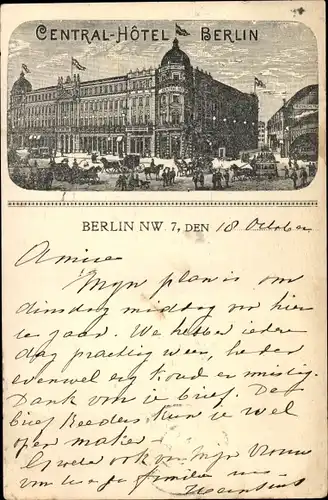 CENTRAL-HÔTEL BERLIN
BERLIN NW. 7, DEN 18 October
Amice
Mijn plan is om
dinsdag middag van hier
te gaan. We hebben iedere
dag prachtig weer, heden
evenwel erg koud en mistig.
Dank van je brief. De
brief Reeders kun je wel
open maken.
Groete ook van mijn vrouw
van huis je familie